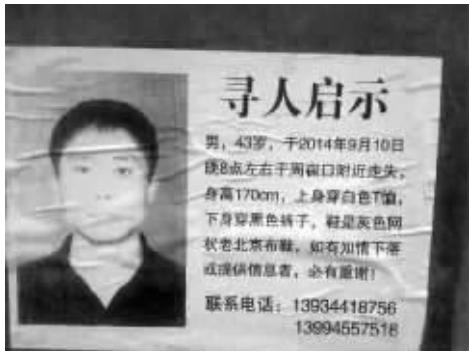 寻人启示
男，43岁，于2014年9月10日
晚8点左右于周家口附近走失，
身高170cm，上身穿白色T恤，
下身穿黑色裤子，鞋是灰色网
状老北京布鞋，如有知情下落
或提供信息者，必有重谢！
联系电话：13934418756
13994557518